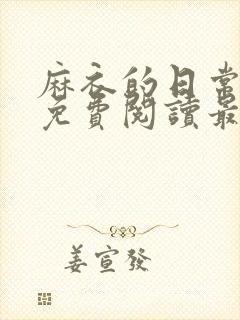 麻衣的日常
免費閱讀最
姜宣發